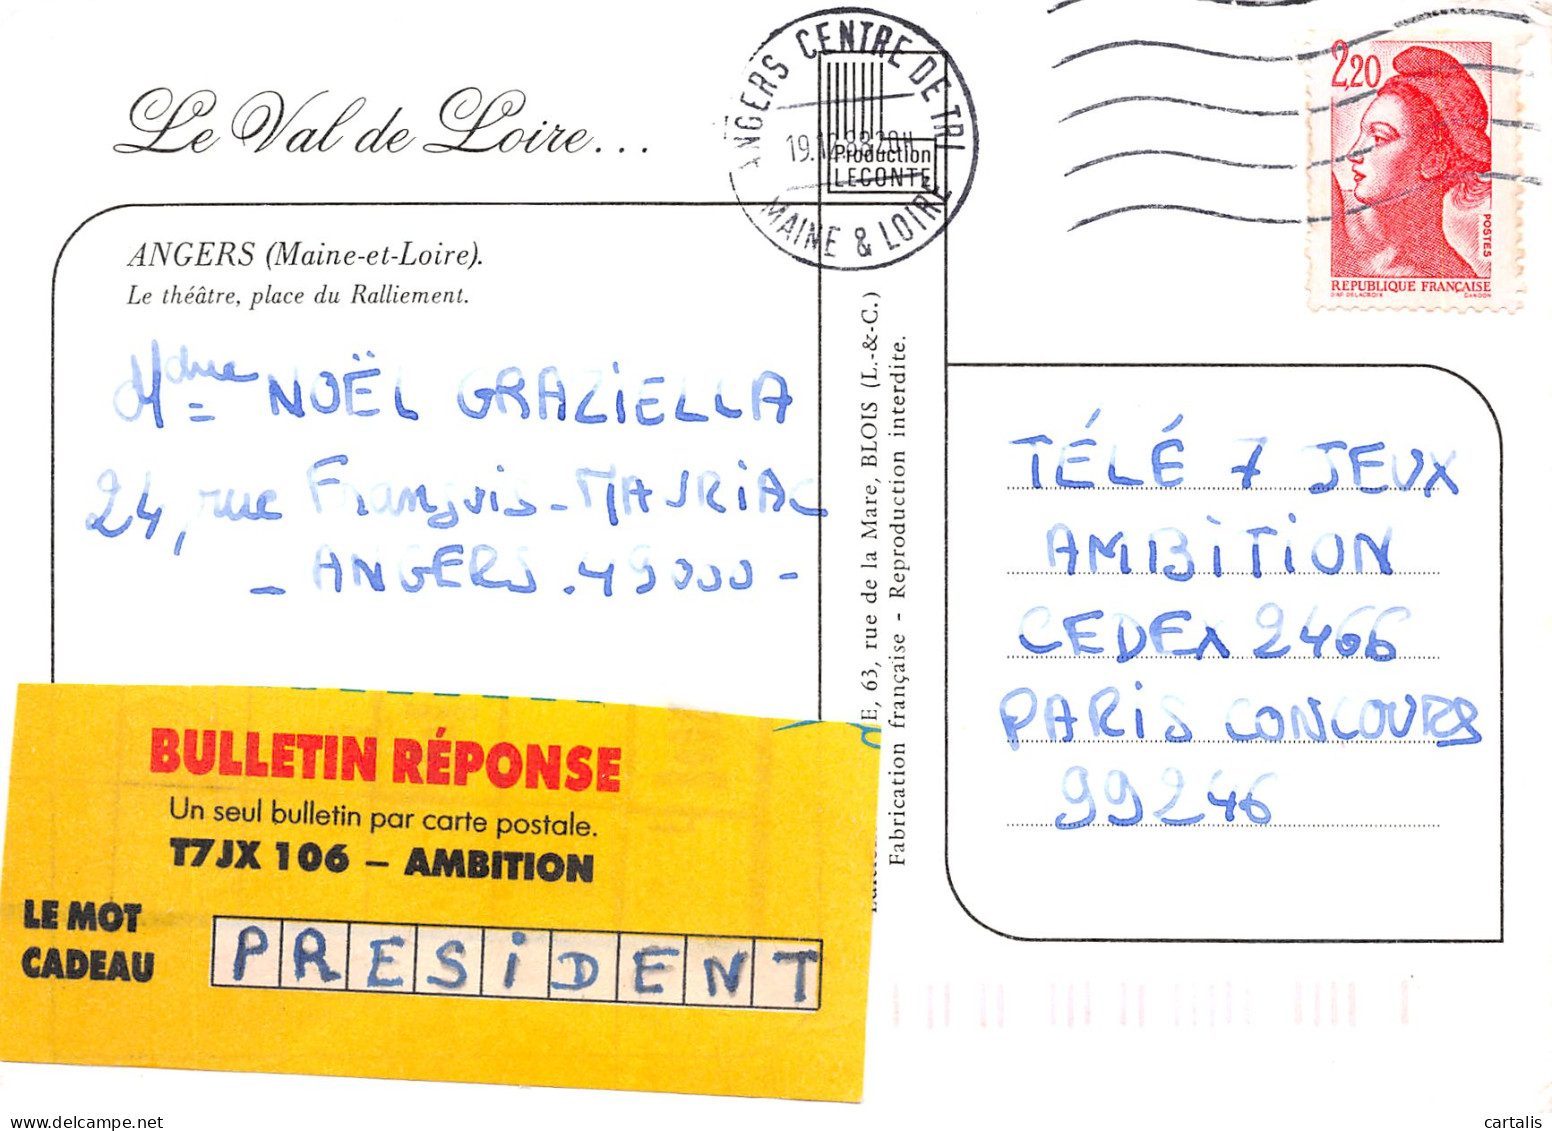 Le Val de Loire...
ANGERS CENTRE DE TRI
19.12.88 20H
MAINE & LOIRE
Production
LECONTE
2,20
POSTES
REPUBLIQUE FRANÇAISE
D'AP. DELACROIX GANDON
ANGERS (Maine-et-Loire).
Le théâtre, place du Ralliement.
Mdme NOËL GRAZIELLA
24, rue François-MAURIAC
- ANGERS . 49000 -
E, 63, rue de la Mare, BLOIS (L.-&-C.)
Fabrication française - Reproduction interdite.
TÉLÉ 7 JEUX
AMBITION
CEDEX 2466
PARIS CONCOURS
99246
BULLETIN RÉPONSE
Un seul bulletin par carte postale.
T7JX 106 – AMBITION
LE MOT
CADEAU
PRESIDENT
cartalis